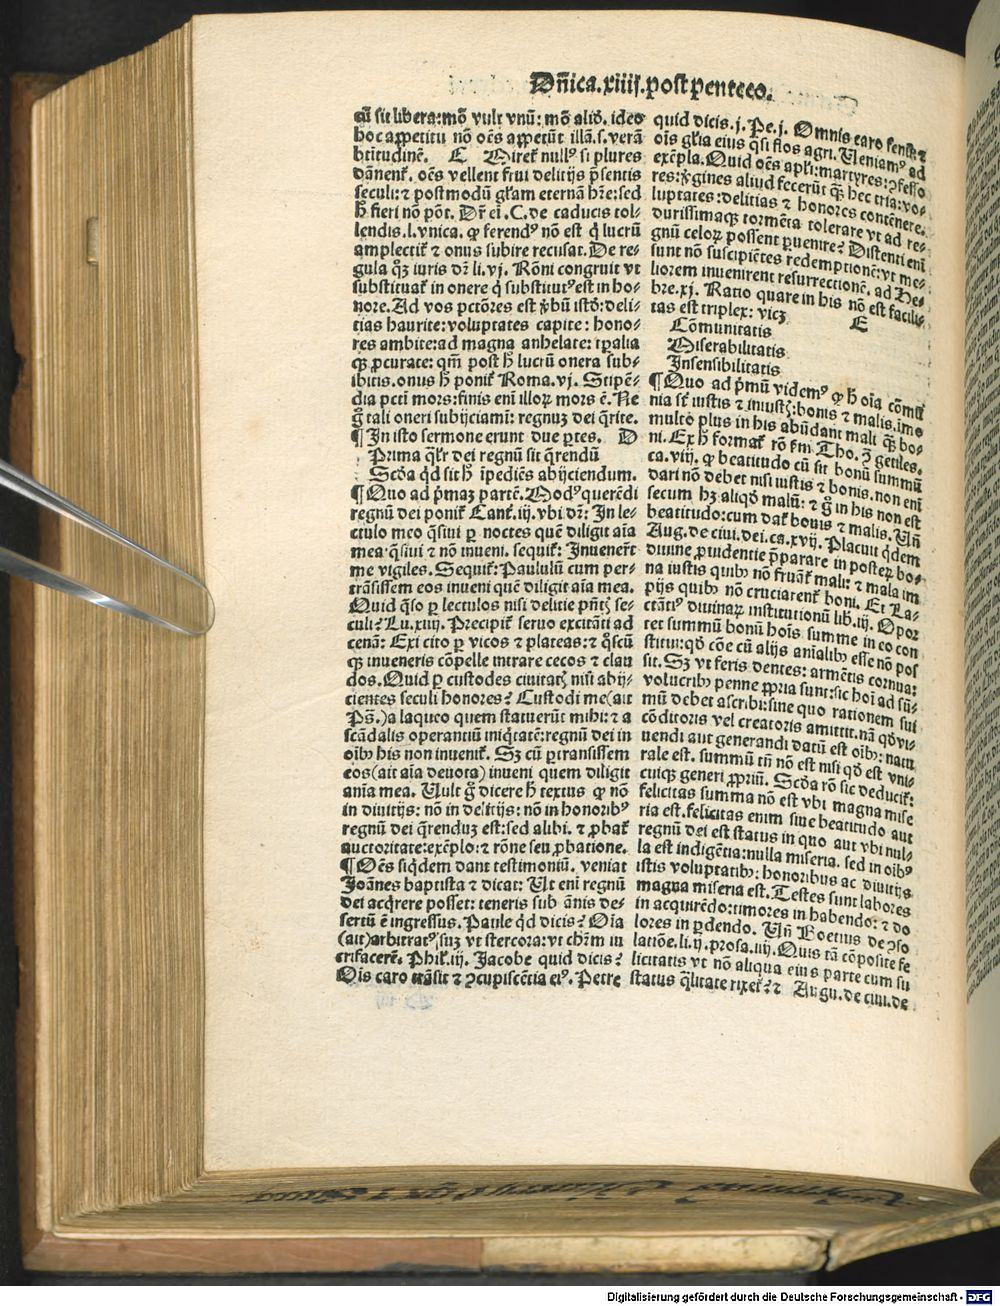 Dñica.xiiij.post penteco.
cũ sit libera: mõ vult vnũ: mõ aliđ. ideo
hoc appetitu nõ oẽs appetũt illã.s. verã
btitudinẽ. C Mirer̃ null⁹ si plures
dãnent̃. oẽs vellent frui delitijs p̃sentis
seculi: ⁊ postmodũ gl̃am eternã hr̃e: sed
h̃ fieri nõ põt. Dr̃ eĩ .C. de caducis tol-
lendis.l.vnica. ꝙ ferend⁹ nõ est q̃ lucrũ
amplectit̃ ⁊ onus subire recusat. De re-
gula q̃ꝫ iuris dr̃ li.vj. Rõni congruit vt
substituat̃ in onere q̃ substitut⁹ est in ho-
nore. Ad vos pctõres est v̓bũ istđ: deli-
tias haurite: voluptates capite: hono-
res ambite: ad magna anhelate: tp̃alia
qꝫ ꝓcurate: qm̃ post h̃ lucrũ onera sub-
ibitis. onus h̃ ponit̃ Roma.vj. Stipẽ-
dia pcti mors: finis enĩ illoꝝ mors ẽ. Ne
g̃ tali oneri subijciamĩ: regnuꝫ dei q̃rite.
¶ In isto sermone erunt due ꝑtes. D
Prima q̃lr̃ dei regnũ sit q̃rendũ
Scđa qđ sit h̃ ĩpediẽs abijciendum.
¶ Quo ad p̃maꝫ partẽ. Mod⁹ querẽdi
regnũ dei ponit̃ Cant̃.iij. vbi dr̃: In le-
ctulo meo q̃siui ꝑ noctes quẽ diligit aĩa
mea. q̃siui ⁊ nõ inueni. sequit̃: Inuener̃t
me vigiles. Sequit̃: Paululũ cum per-
trãsissem eos inueni quẽ diligit aĩa mea.
Quid q̃so ꝑ lectulos nisi delitie pñtꝭ se-
culi? Lu.xiiij. Precipit̃ seruo excitãti ad
cenã: Exi cito ꝑ vicos ⁊ plateas: ⁊ q̃scũ
qꝫ inueneris cõpelle intrare cecos ⁊ clau
dos. Quid ꝑ custodes ciuitatꝭ nisi abij-
cientes seculi honores? Custodi me (ait
Ps̃.) a laqueo quem statuerũt mihi: ⁊ a
scãdalis operantiũ iniq̃tatẽ: regnũ dei in
oĩbꝰ his non inuenit̃. Sꝫ cũ ꝑtransissem
eos (ait aĩa deuota) inueni quem diligit
anĩa mea. Vult g̃ dicere h̃ textus ꝙ nõ
in diuitijs: nõ in delitijs: nõ in honorib⁹
regnũ dei q̃renduꝫ est: sed alibi. ⁊ ꝓbat̃
auctoritate: exẽplo: ⁊ rõne seu ꝓbatione.
¶ Oẽs siq̃dem dant testimoniũ. veniat
Joãnes baptista ⁊ dicat: Vt enĩ regnũ
dei acq̃rere posset: teneris sub ãnis de-
sertũ ẽ ingressus. Paule qđ dicis? Oĩa
(ait) arbitrat⁹ suꝫ vt stercora: vt chr̃m lu
crifacerẽ. Phil̃.iij. Jacobe quid dicis?
Ois caro trãsit ⁊ ꝯcupiscẽtia ei⁹. Petre
quid dicis.j.Pe.j. Omnis caro fenũ: ⁊
oĩs gl̃ia eius q̃si flos agri. Veniam⁹ ad
exẽpla. Quid oẽs apl̃i: martyres: ꝯfesso
res: v̓gines aliud fecerũt qꝫ hec tria: vo-
luptates: delitias ⁊ honores contẽnere.
durissimaqꝫ tormẽta tolerare vt ad re-
gnũ celoꝝ possent ꝑuenire? Distenti enĩ
sunt nõ suscipiẽtes redemptionẽ: vt me-
liorem inuenirent resurrectionẽ. ad He-
bre.xj. Ratio quare in his nõ est facili-
tas est triplex: vicꝫ E
Cõmunitatis
Miserabilitatis
Insensibilitatis
¶ Quo ad p̃mũ videm⁹ ꝙ h̃ oĩa cõmũ
nia sũt iustis ⁊ iniustꝭ: bonis ⁊ malis. imo
multo plus in his abũdant mali qꝫ bo-
ni. Ex h̃ format̃ rõ s̃m Tho. ꝯ̃ gẽtiles.
ca.viij. ꝙ beatitudo cũ sit bonũ summũ
dari nõ debet nisi iustis ⁊ bonis. non enĩ
secum hꝫ aliqđ malũ: ⁊ g̃ in his non est
beatitudo: cum dat̃ bonis ⁊ malis. Vñ
Aug. de ciui.dei.ca.xvij. Placuit q̃dem
diuine ꝓuidentie p̃parare in posteꝝ bo-
na iustis quibꝰ nõ fruãt̃ mali: ⁊ mala im
pijs quibꝰ nõ cruciarent̃ boni. Et La-
ctãti⁹ diuinaꝝ institutionũ lib.iij. Opor
tet summũ bonũ hoĩs summe in eo con
stitui: qđ cõe cũ alijs anĩalibꝰ esse nõ pos
sit. Sꝫ vt feris dentes: armẽtis cornua:
volucribꝰ penne ꝓpria sunt: sic hoĩ ad sũ-
mũ debet ascribi: sine quo rationem sui
cõditoris vel creatoris amittit. nã qđ vi-
uendi aut generandi datũ est oĩbꝰ: natu
rale est. summũ tñ nõ est nisi qđ est vni-
cuiqꝫ generi ꝓpriũ. Scđa rõ sic deducit̃:
felicitas summa nõ est vbi magna mise
ria est. felicitas enim siue beatitudo aut
regnũ dei est status in quo aut vbi nul-
la est indigẽtia: nulla miseria. sed in oĩb⁹
istis voluptatibꝰ: honoribus ac diuitijs
magna miseria est. Testes sunt labores
in acquirẽdo: timores in habendo: ⁊ do
lores in ꝑdendo. Vñ Boetius de ꝯso
latiõe.li.ij.prosa.iiij. Quis tã cõposite fe
licitatis vt nõ aliqua eius parte cum su
status q̃litate rixet̃? ⁊ Augu. de ciui.de
Digitalisierung gefördert durch die Deutsche Forschungsgemeinschaft - DFG